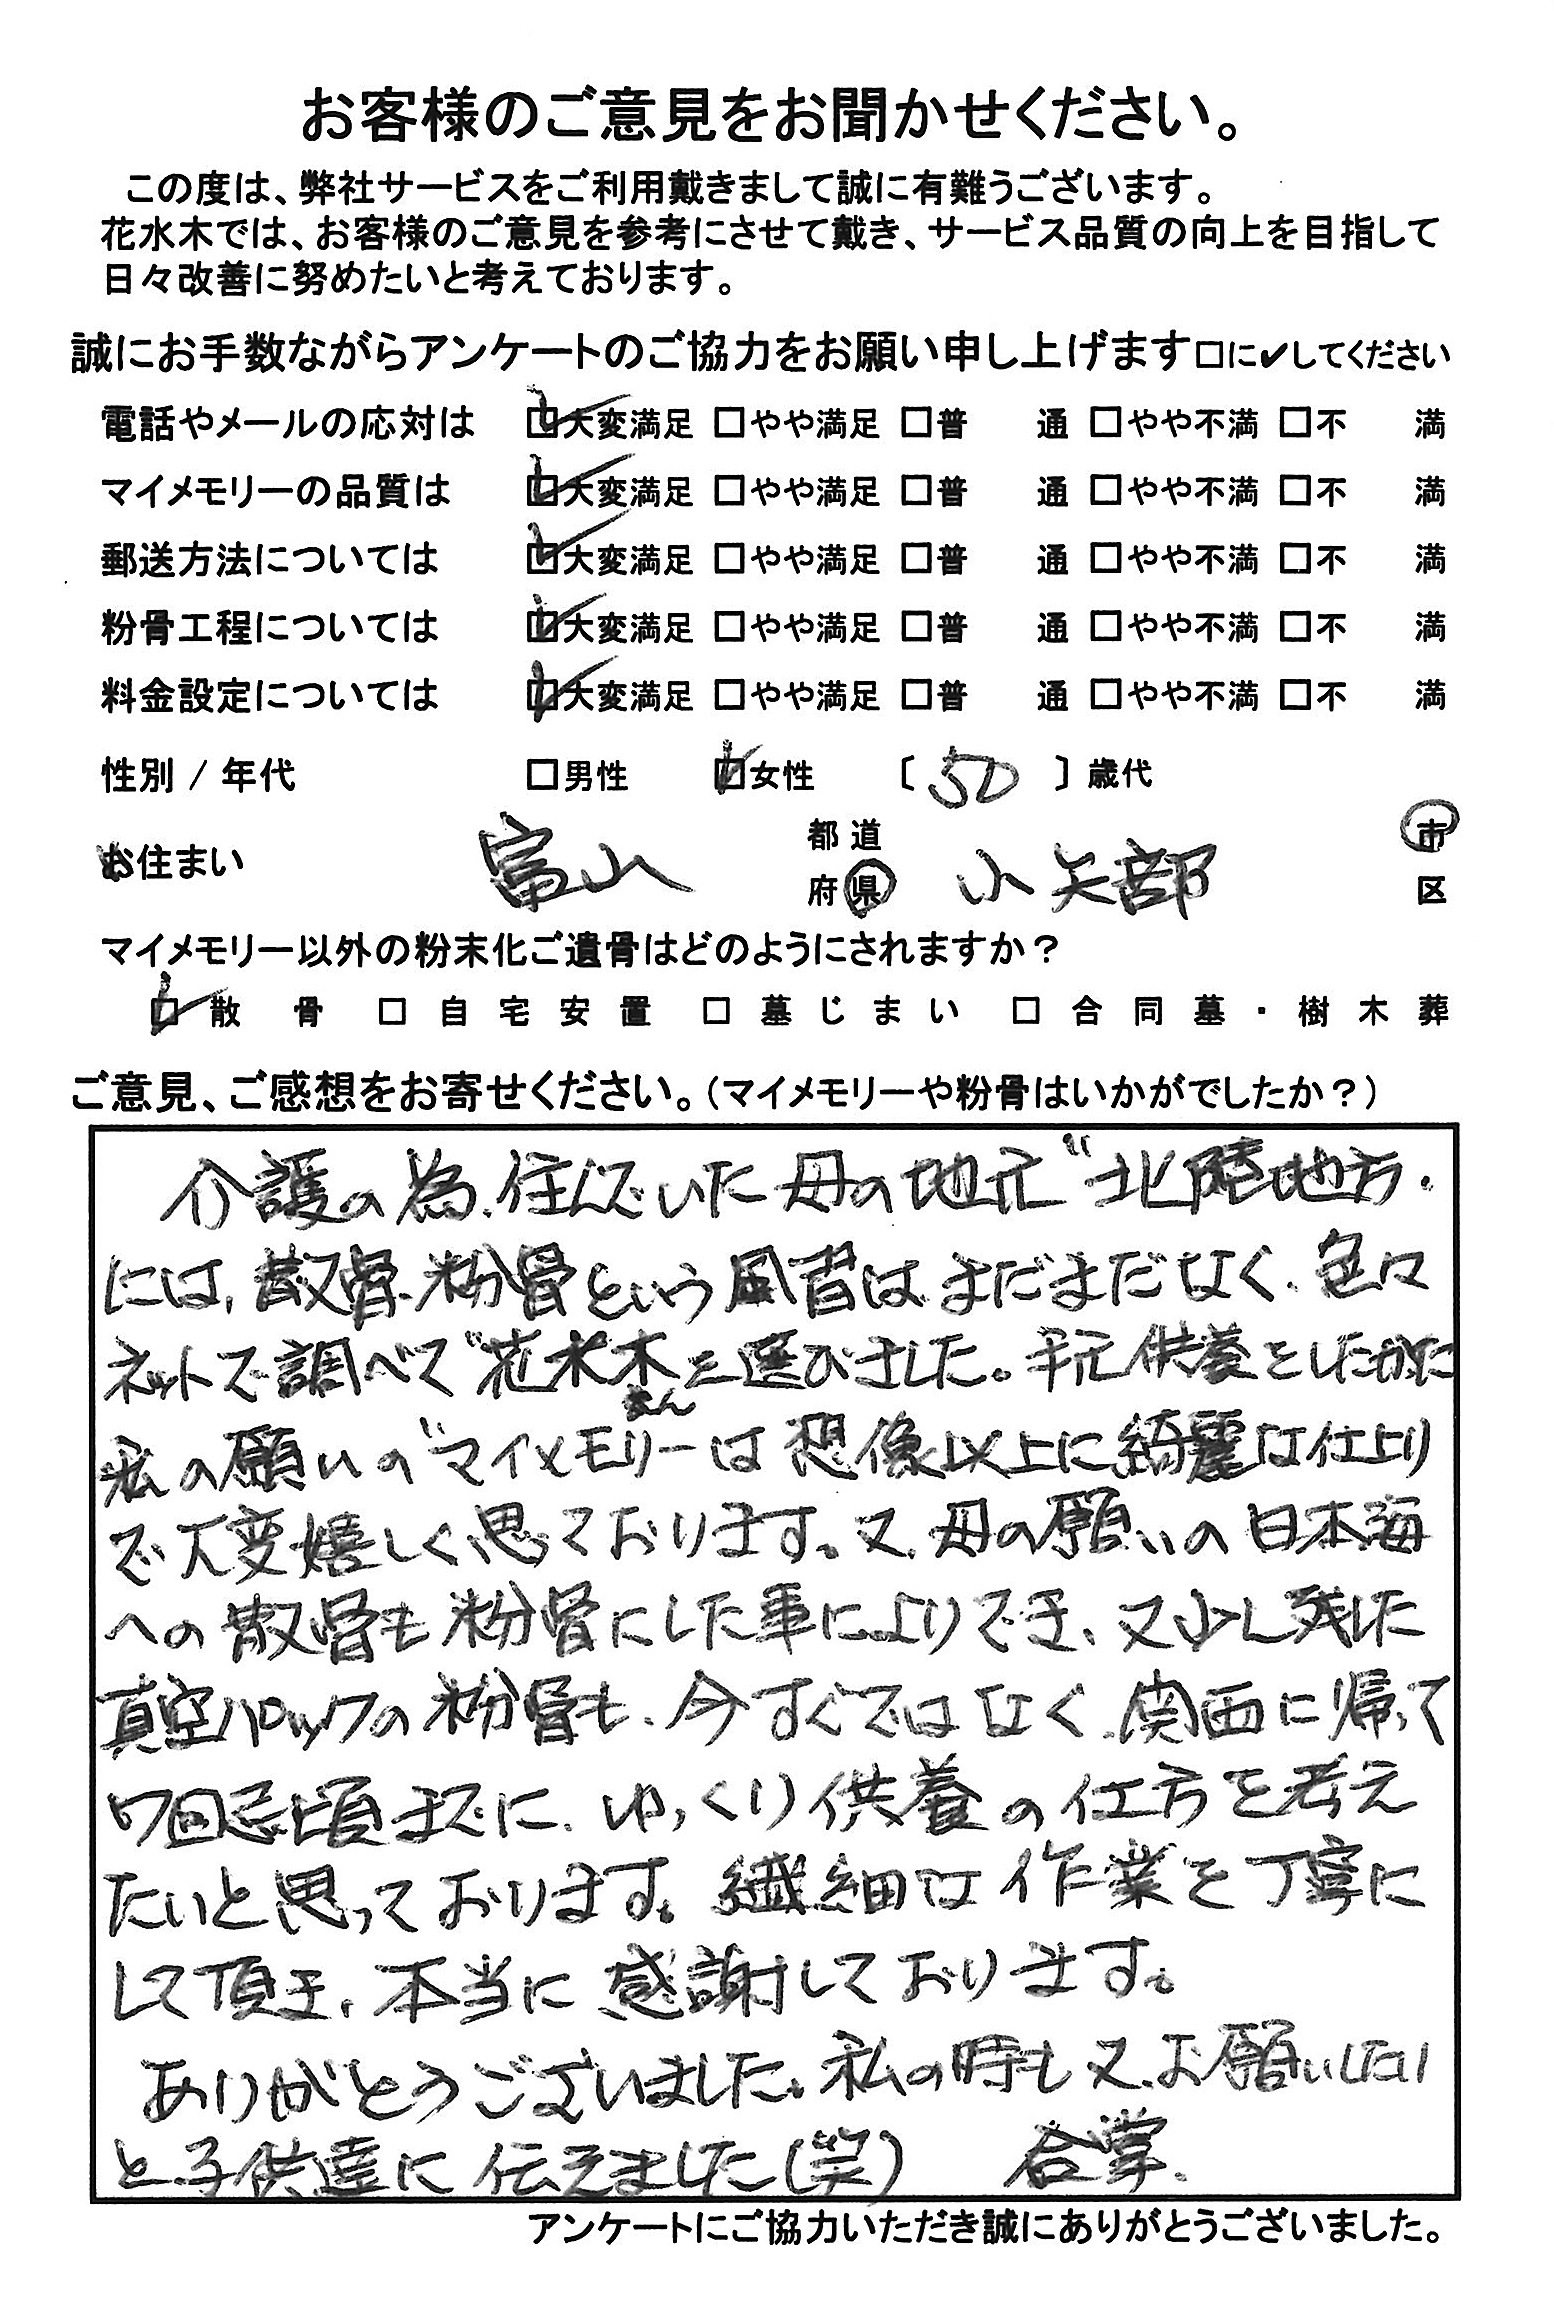 お客様のご意見をお聞かせください。
この度は、弊社サービスをご利用戴きまして誠に有難うございます。
花水木では、お客様のご意見を参考にさせて戴き、サービス品質の向上を目指して
日々改善に努めたいと考えております。
誠にお手数ながらアンケートのご協力をお願い申し上げます□に✔してください
電話やメールの応対は ☑大変満足 □やや満足 □普 通 □やや不満 □不 満
マイメモリーの品質は ☑大変満足 □やや満足 □普 通 □やや不満 □不 満
郵送方法については ☑大変満足 □やや満足 □普 通 □やや不満 □不 満
粉骨工程については ☑大変満足 □やや満足 □普 通 □やや不満 □不 満
料金設定については ☑大変満足 □やや満足 □普 通 □やや不満 □不 満
性別 / 年代 □男性 ☑女性 〔 50 〕歳代
お住まい 富山 都道府県 小矢部 市区
マイメモリー以外の粉末化ご遺骨はどのようにされますか？
☑ 散骨 □ 自宅安置 □ 墓じまい □ 合同墓・樹木葬
ご意見、ご感想をお寄せください。（マイメモリーや粉骨はいかがでしたか？）
介護の為、住んでいた母の地元"北陸地方"
には、散骨、粉骨という風習はまだまだなく、色々
ネットで調べて"花水木さんを選びました。手元供養をしたかった
私の願いの"マイメモリーは想像以上に綺麗な仕上り
で大変嬉しく思っております。又、母の願いの日本海
への散骨も粉骨にした事によりでき、又少し残した
真空パックの粉骨も、今すぐではなく、関西に帰って
7回忌頃までに、ゆっくり供養の仕方を考え
たいと思っております。繊細な作業を丁寧に
して頂き、本当に感謝しております。
ありがとうございました。私の時も又、お願いしたい
と子供達に伝えました(笑) 合掌.
アンケートにご協力いただき誠にありがとうございました。